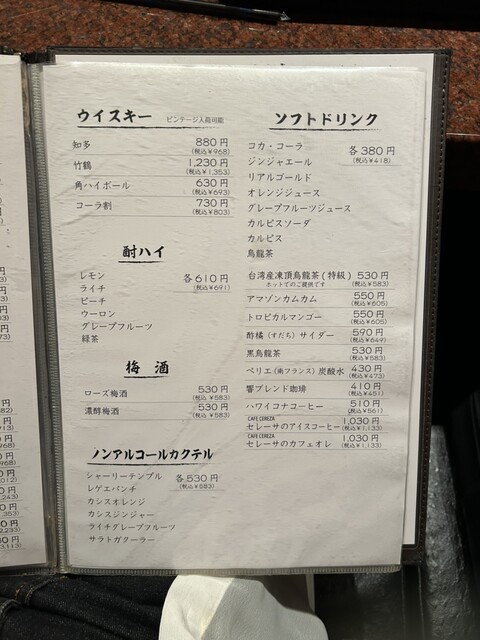 ウイスキー ビンテージ入荷可能
知多 880円
(税込¥968)
竹鶴 1,230円
(税込¥1,353)
角ハイボール 630円
(税込¥693)
コーラ割 730円
(税込¥803)
酎ハイ
レモン 各610円
(税込¥691)
ライチ
ピーチ
ウーロン
グレープフルーツ
緑茶
梅酒
ローズ梅酒 530円
(税込¥583)
濃醇梅酒 530円
(税込¥583)
ノンアルコールカクテル
シャーリーテンプル 各530円
(税込¥583)
レゲエパンチ
カシスオレンジ
カシスジンジャー
ライチグレープフルーツ
サラトガクーラー
ソフトドリンク
コカ・コーラ 各380円
(税込¥418)
ジンジャエール
リアルゴールド
オレンジジュース
グレープフルーツジュース
カルピスソーダ
カルピス
烏龍茶
台湾産凍頂烏龍茶(特級) 530円
ホットでのご提供です (税込¥583)
アマゾンカムカム 550円
(税込¥605)
トロピカルマンゴー 550円
(税込¥605)
酢橘(すだち)サイダー 590円
(税込¥649)
黒烏龍茶 530円
(税込¥583)
ペリエ(南フランス)炭酸水 430円
(税込¥473)
響ブレンド珈琲 410円
(税込¥451)
ハワイコナコーヒー 510円
(税込¥561)
CAFE CEREZA
セレーサのアイスコーヒー 1,030円
(税込¥1,133)
CAFE CEREZA
セレーサのカフェオレ 1,030円
(税込¥1,133)